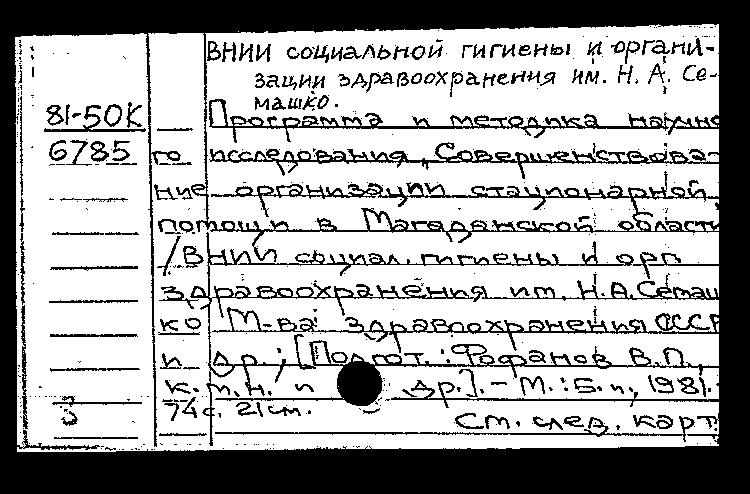 ВНИИ социальной гигиены и органи-
зации здравоохранения им. Н. А. Се-
машко.
81-50К
6785
Программа и методика научно
го исследования „Совершенствова-
ние организации стационарной
помощи в Магаданской области
/ВНИИ социал. гигиены и орг.
здравоохранения им. Н.А.Семаш
ко М-ва здравоохранения СССР
и др.; [Подгот.: Фофанов В.П.,
к.т.н. и др.]. - М. : Б. и, 1981.-
74 с. 21 см.
См. след. карт.